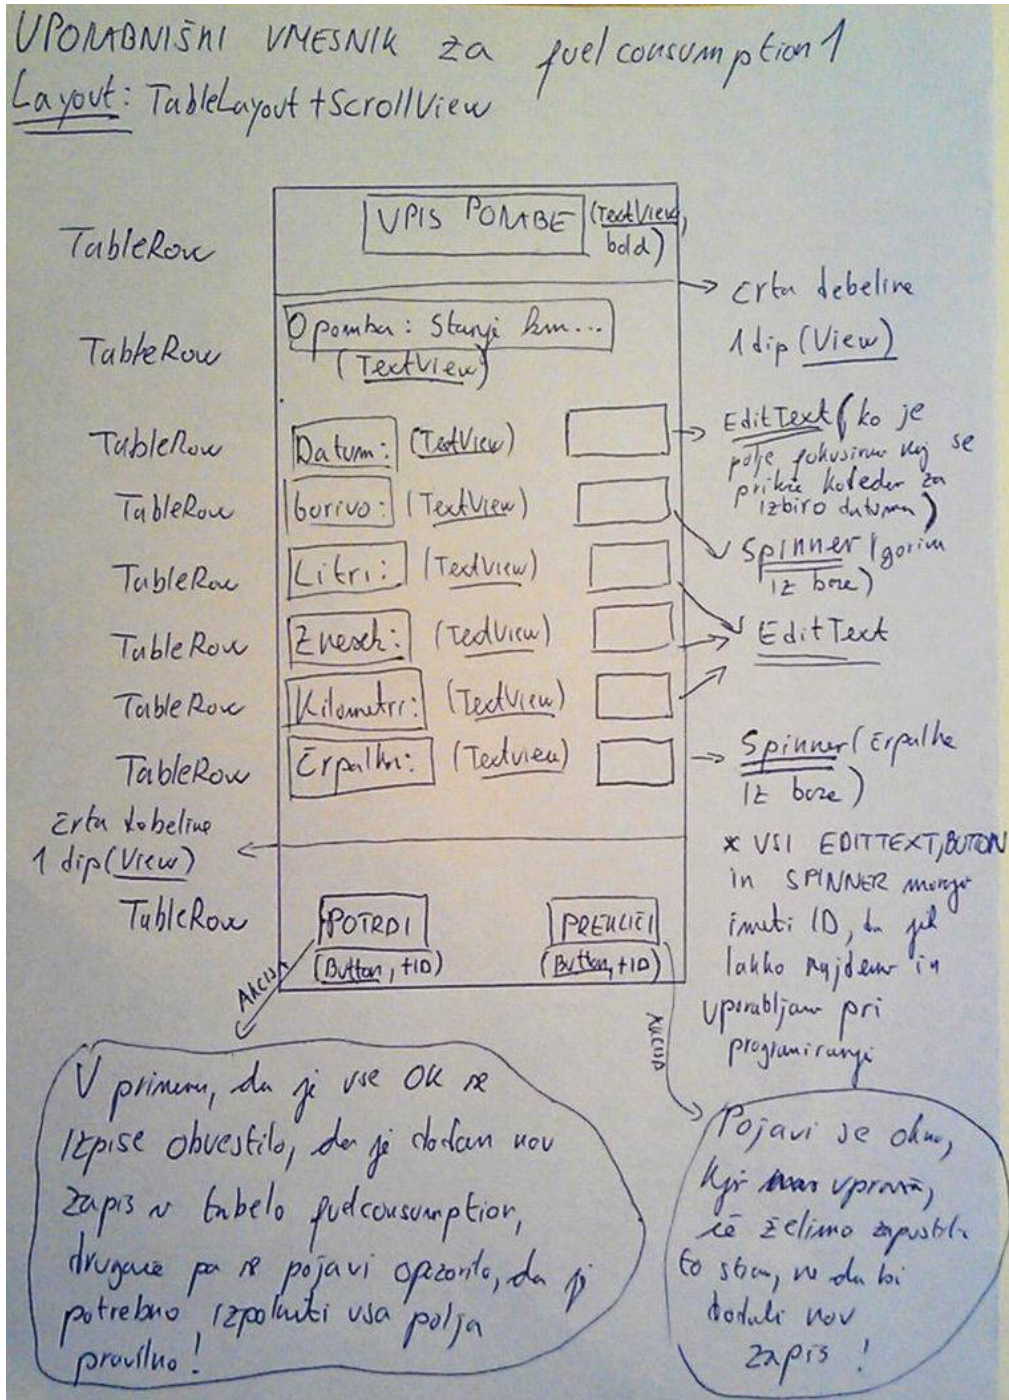 UPORABNIŠKI VMESNIK za fuelconsumption1
Layout: TableLayout + ScrollView
TableRow
VPIS PORABE
(TextView,
bold)
črta debeline
1 dip (View)
TableRow
Opomba: Stanje km...
(TextView)
TableRow
Datum:
(TextView)
EditText (ko je
polje fokusirano naj se
prikže koledar za
izbiro datuma)
TableRow
Gorivo:
(TextView)
Spinner (goriva
iz baze)
TableRow
Litri:
(TextView)
TableRow
Znesek:
(TextView)
EditText
TableRow
Kilometri:
(TextView)
TableRow
Črpalka:
(Textview)
Spinner (črpalke
iz baze)
črta debeline
1 dip (View)
* VSI EDITTEXT, BUTON
in SPINNER morajo
imeti ID, da jih
lahko najdemo in
uporabljamo pri
programiranju
TableRow
POTRDI
(Button, +ID)
PREKLIČI
(Button, +ID)
AKCIJA
AKCIJA
V primeru, da je vse OK se
izpiše obvestilo, da je dodan nov
zapis v tabelo fuelconsumption,
drugače pa se pojavi opozorilo, da je
potrebno izpolniti vsa polja
pravilno!
Pojavi se okno,
kjer vpraša,
če želimo zapustiti
to stran, ne da bi
dodali nov
zapis!